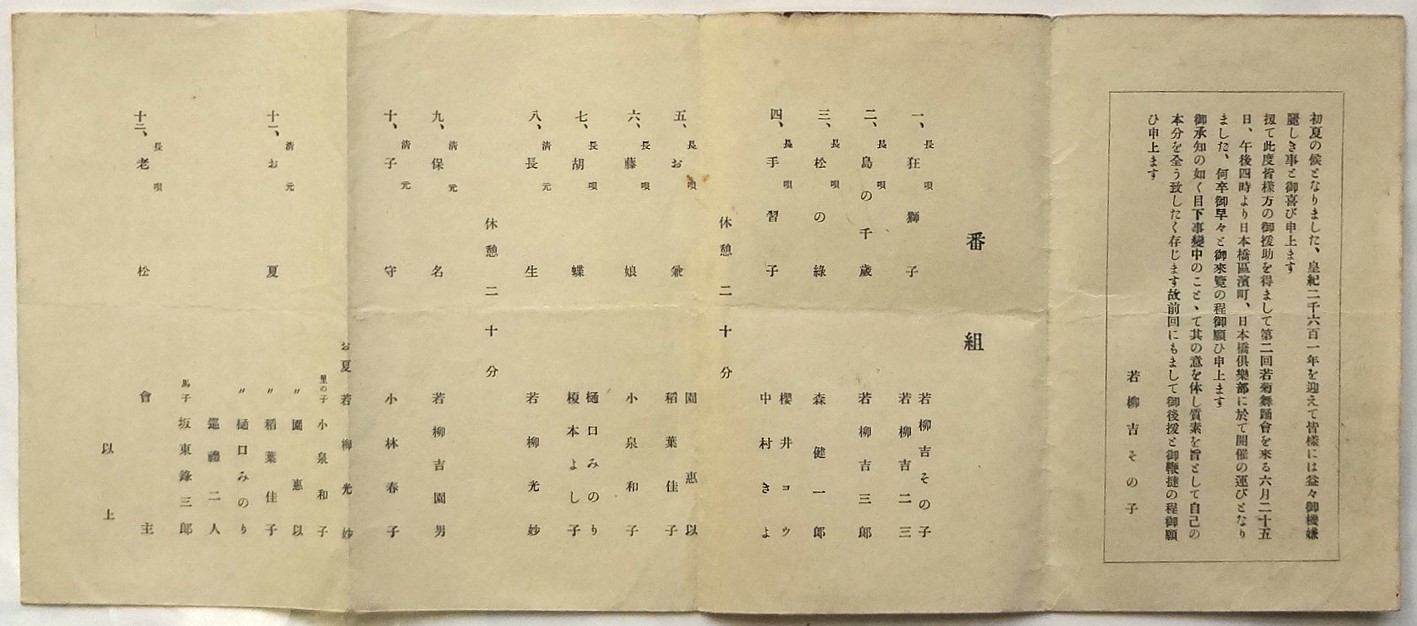 初夏の候となりました、皇紀二千六百一年を迎えて皆樣には益々御機嫌
麗しき事と御喜び申上ます
扨て此度皆樣方の御援助を得まして第二回若菊舞踊會を來る六月二十五
日、午後四時より日本橋區濱町、日本橋倶樂部に於て開催の運びとなり
ました、何卒御早々と御來覽の程御願ひ申上ます
御承知の如く目下事變中のことゝて其の意を体し質素を旨として自己の
本分を全う致したく存じます故前回にもまして御後援と御鞭撻の程御願
ひ申上ます
若柳吉その子
番組
一、長唄 狂獅子
若柳吉その子
若柳吉二三
二、長唄 島の千歳
若柳吉三郎
三、長唄 松の綠
森健一郎
四、長唄 手習子
櫻井コウ
中村きよ
休憩二十分
五、長唄 お兼
園惠以
稻葉佳子
六、長唄 藤娘
小泉和子
七、長唄 胡蝶
樋口みのり
榎本よし子
八、清元 長生
若柳光妙
休憩二十分
九、清元 保名
若柳吉園男
十、清元 子守
小林春子
十一、清元 お夏
お夏 若柳光妙
里の子 小泉和子
〃 園惠以
〃 稻葉佳子
〃 樋口みのり
巡禮二人
馬子 坂東錄三郎
十二、長唄 老松
會主
以上